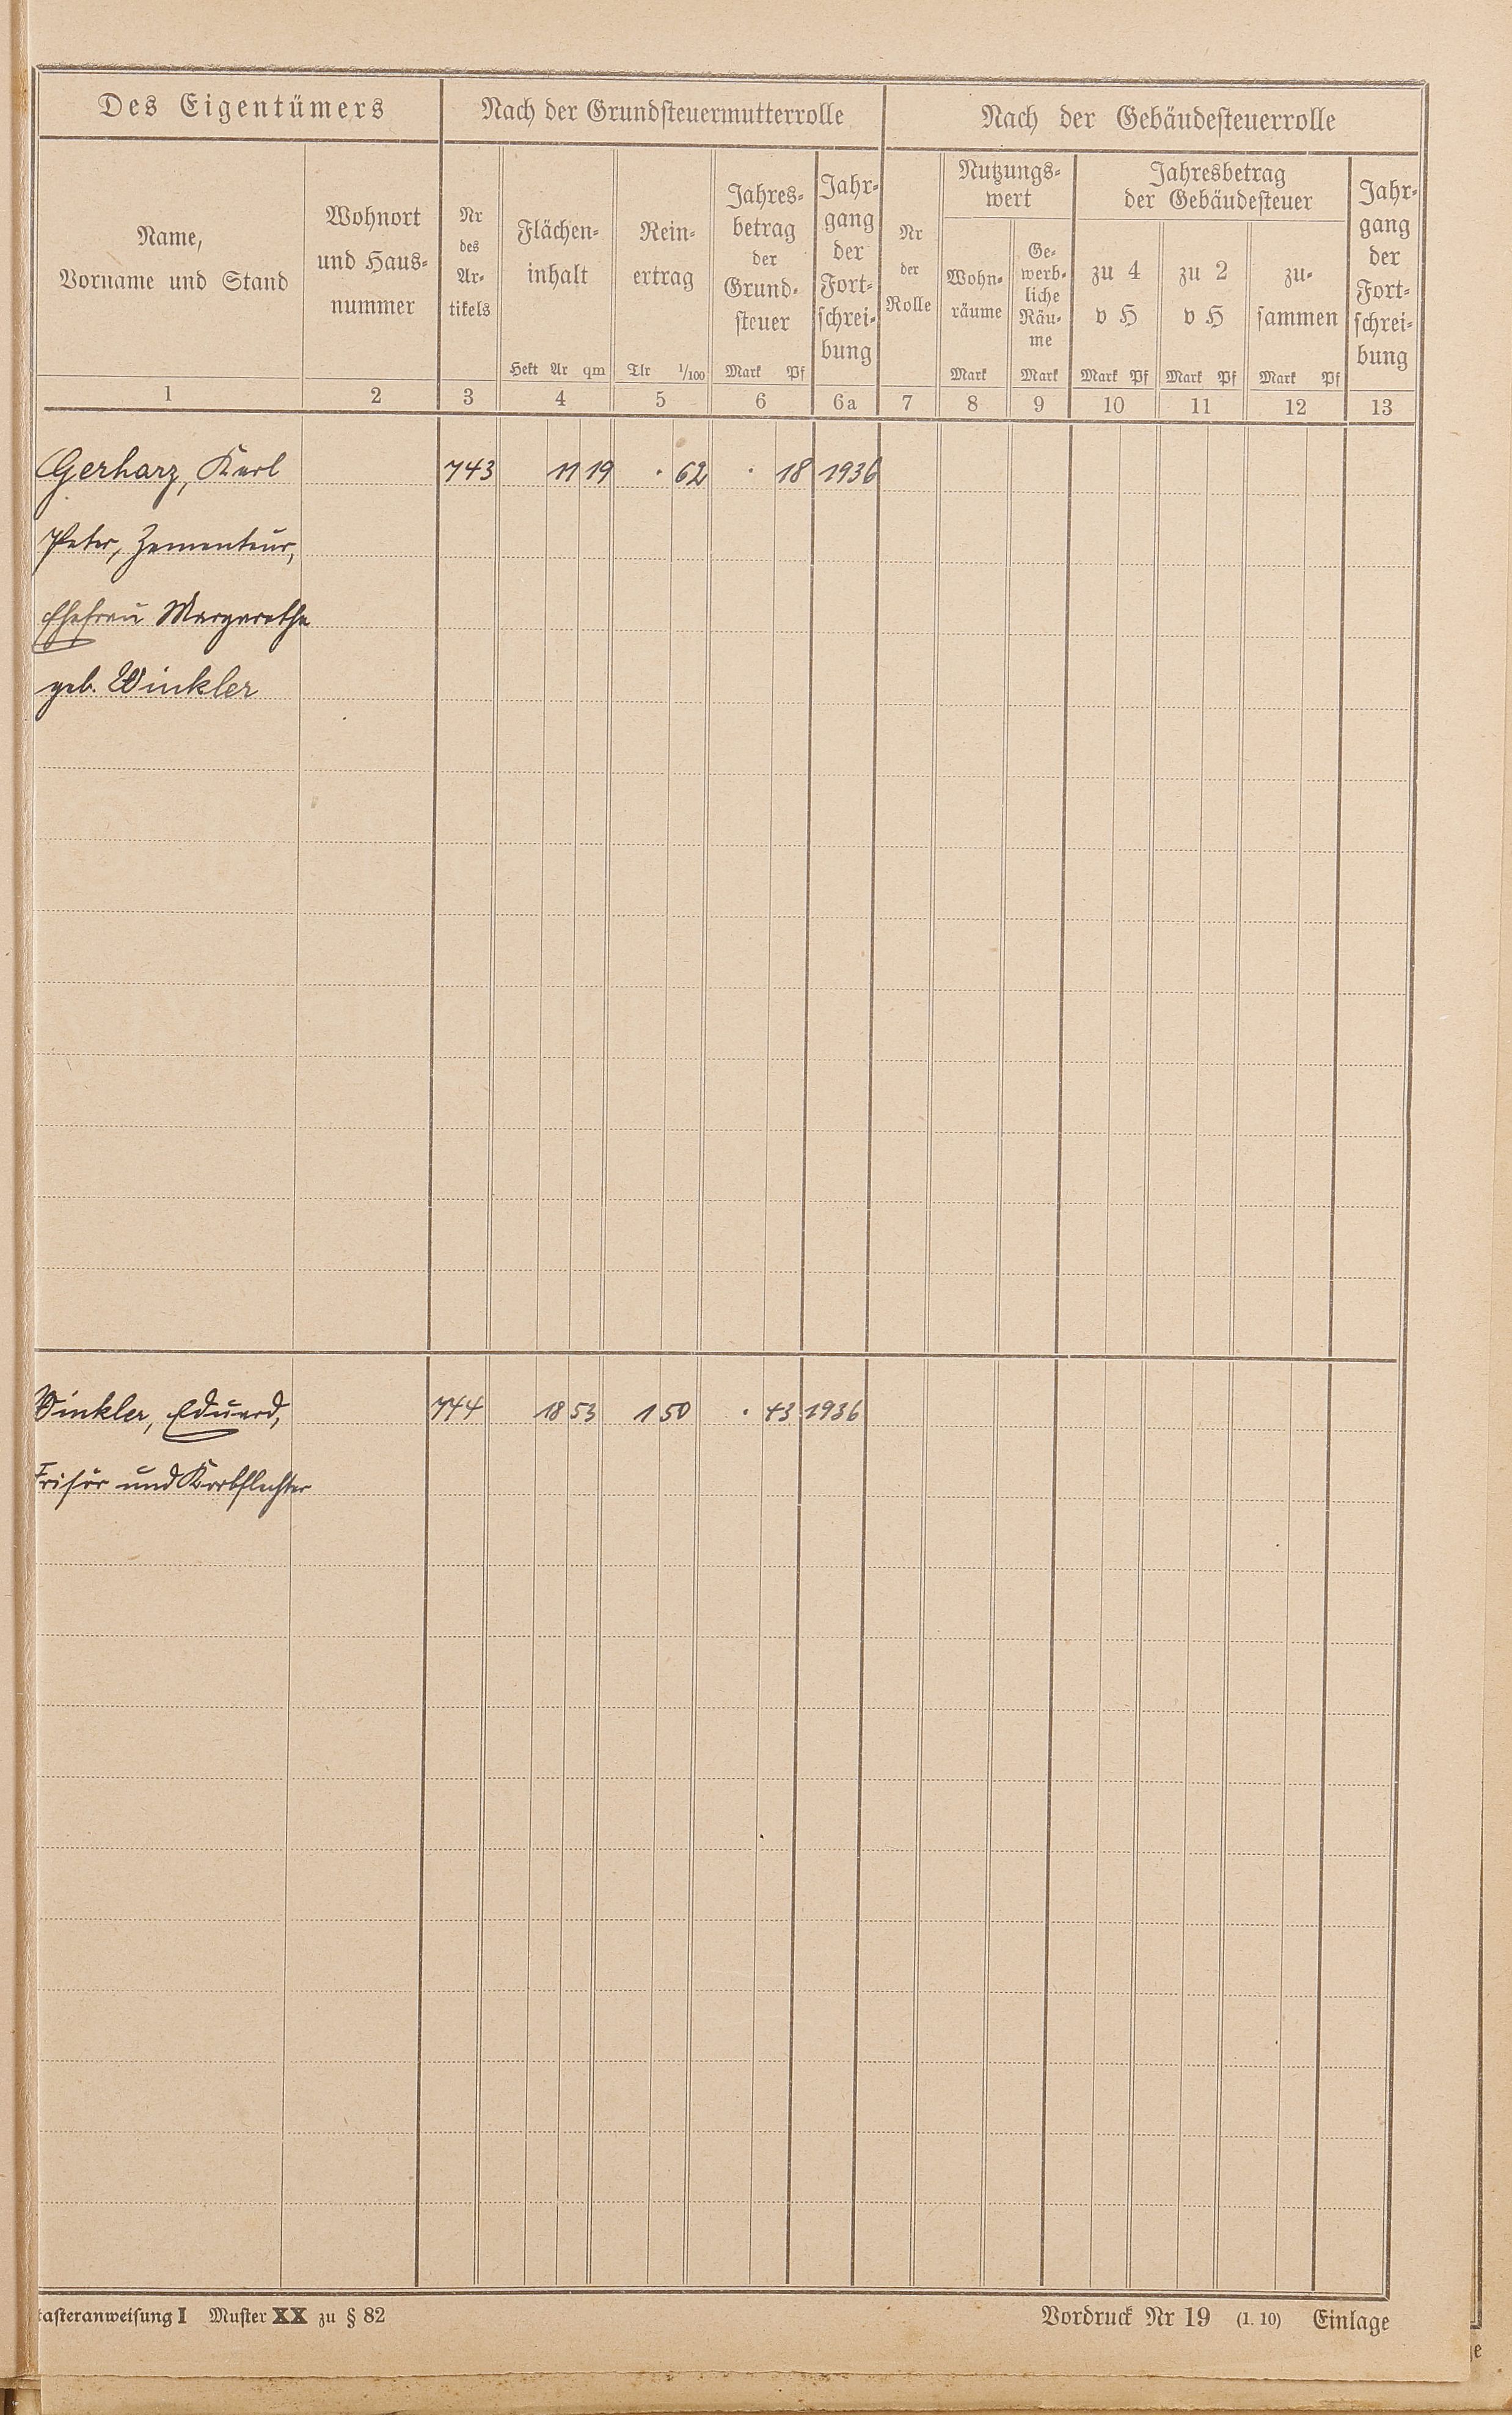 Des Eigentümers
Nach der Grundsteuermutterrolle
Nach der Gebäudesteuerrolle
Name,
Vorname und Stand
Wohnort
und Haus-
nummer
Nr
des
Ar-
tikels
Flächen-
inhalt
Hekt Ar qm
Rein-
ertrag
Tlr 1/100
Jahres-
betrag
der
Grund-
steuer
Mark Pf
Jahr-
gang
der
Fort-
schrei-
bung
Nr
der
Rolle
Nutzungs-
wert
Wohn-
räume
Mark
Ge-
werb-
liche
Räu-
me
Mark
Jahresbetrag
der Gebäudesteuer
zu 4
v H
Mark Pf
zu 2
v H
Mark Pf
zu-
sammen
Mark Pf
Jahr-
gang
der
Fort-
schrei-
bung
1 2 3 4 5 6 6a 7 8 9 10 11 12 13
Gerharz, Karl 743 11 19 . 62 . 18 1936
Peter, Zementeur,
Ehefrau Margarethe
geb. Winkler
Winkler, Eduard, 744 18 53 1 50 . 43 1936
Frisör und Korbflechter
tasteranweisung I Muster XX zu § 82
Vordruck Nr 19 (1. 10) Einlage
e